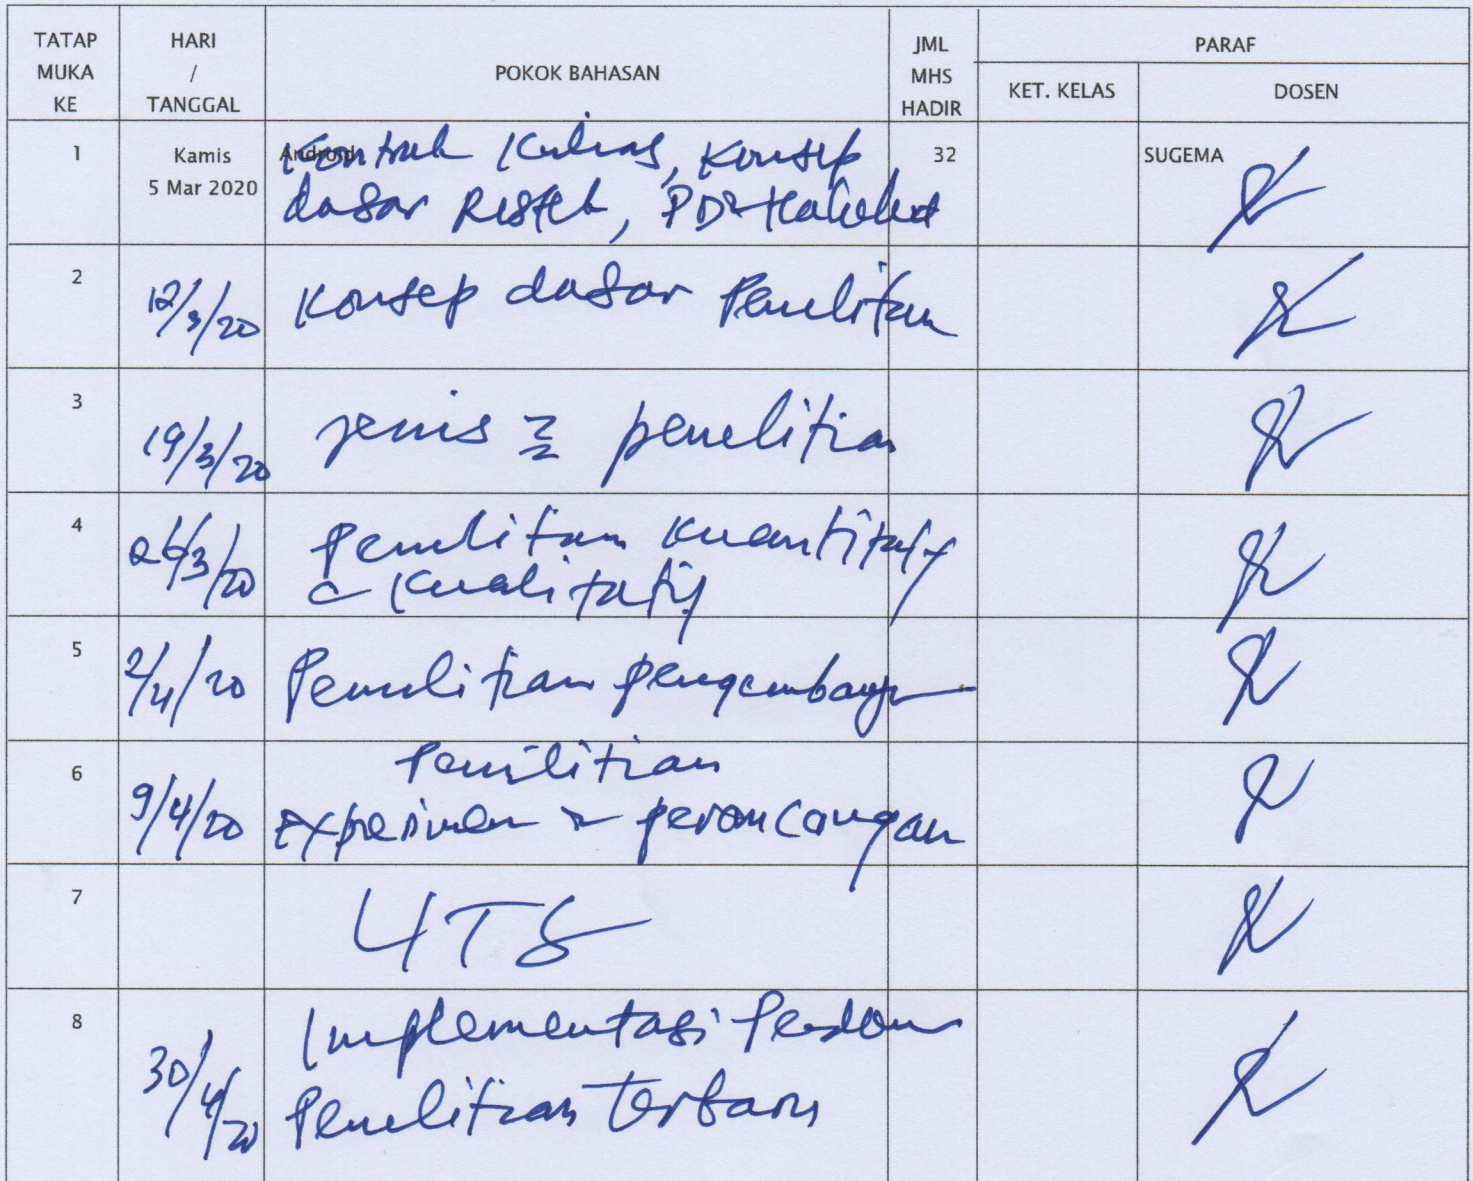 TATAP MUKA KE
HARI / TANGGAL
POKOK BAHASAN
JML MHS HADIR
PARAF
KET. KELAS
DOSEN
1
Kamis
5 Mar 2020
Android
Kontrak Kuliah, Konsep
dasar
32
SUGEMA
2
12/3/20
Konsep dasar Penelitian
3
19/3/20
jenis 2 penelitian
4
26/3/20
Penelitian Kuantitatif
& Kualitatif
5
2/4/20
Penelitian pengembangan
6
9/4/20
Penelitian
Experimen & perancangan
7
UTS
8
30/4/20
Implementasi
Penelitian Terbaru